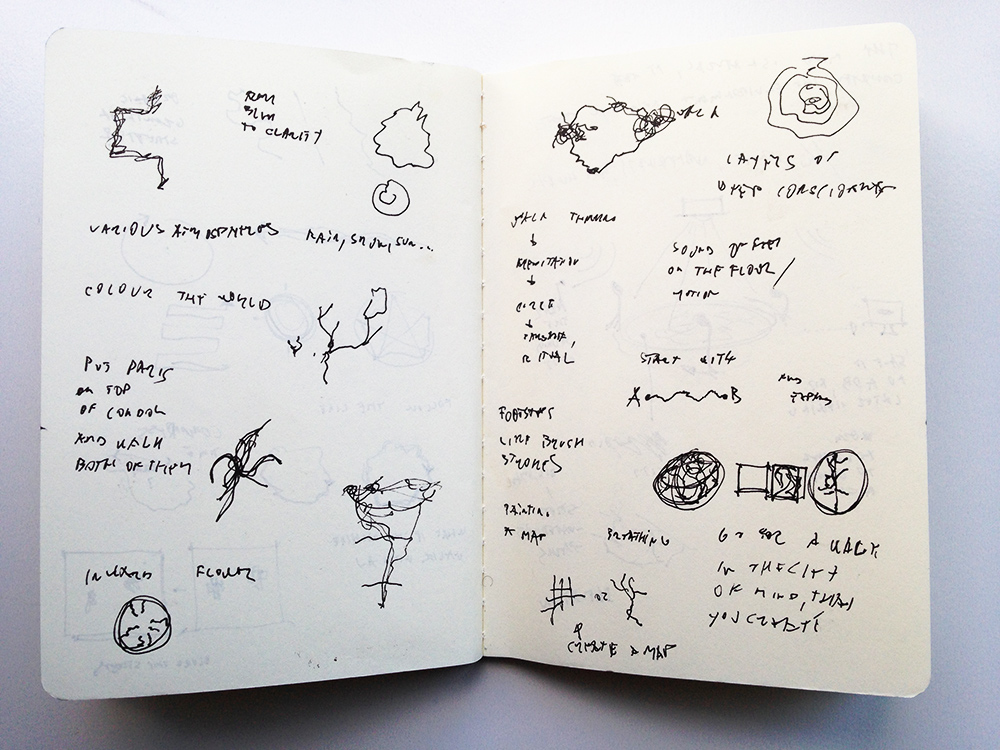 BLUR
TO CLARITY
VARIOUS ATMOSPHERES
RAIN, SNOW, SUN...
COLOUR THE WORLD
PUT PARIS
ON TOP
OF LONDON
AND WALK
BOTH OF THEM
INWARD
FLOWER
WALK
LAYERS OF
CONSCIOUSNESS
WALK THROUGH
↓
MEDITATION
↓
CIRCLE
↓
RITUAL
SOUND OF FEET
ON THE FLOOR/
MOTION
START WITH
A B
AND
FOOTSTEPS
LIKE BRUSH
STROKES
PAINTING
A MAP
BREATHING
GO FOR A WALK
IN THE CITY
OF MIND, THEN
YOU CREATE
OR
CREATE A MAP